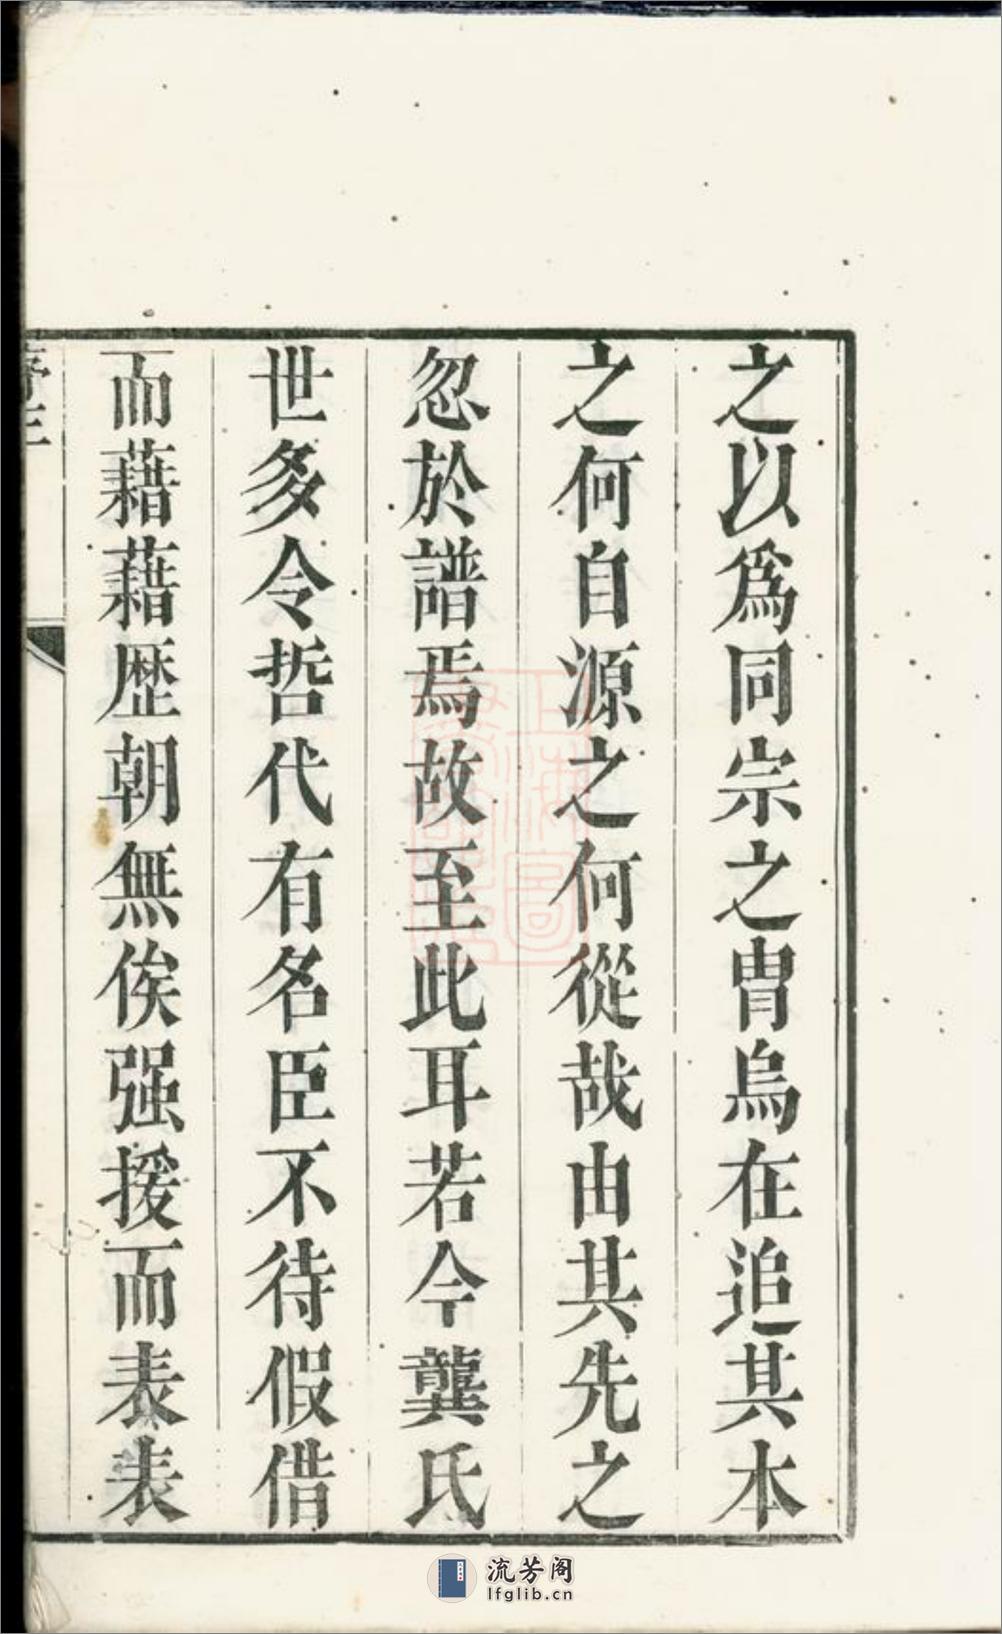 之以爲同宗之冑烏在追其本
之何自源之何從哉由其先之
忽於譜焉故至此耳若今龔氏
世多令哲代有名臣不待假借
而藉藉歴朝無俟强援而表表
流芳阁
lfglib.cn